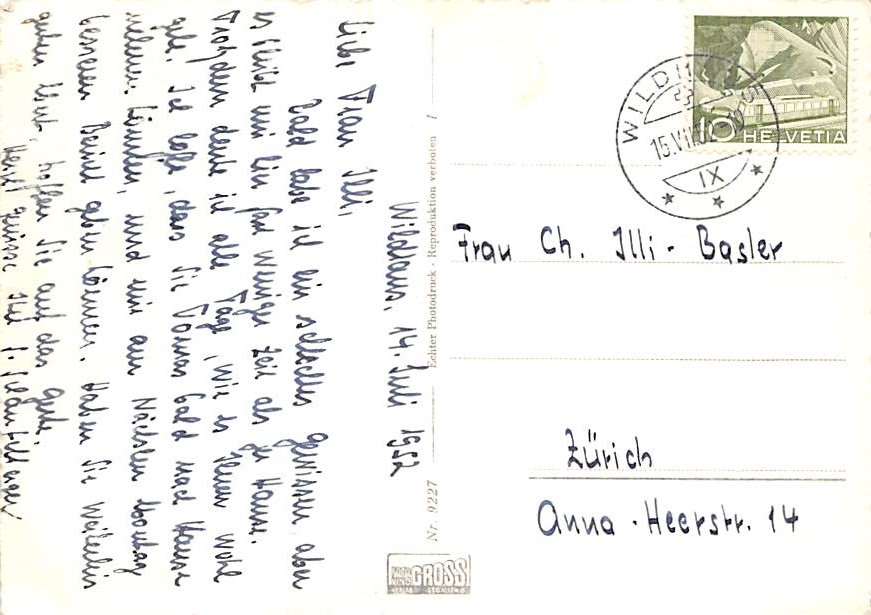 Wildhaus, 14. Juli 1952
Liebe Frau Illi,
Bald habe ich ein schlechtes gewissen, aber
es bleibt mir hier fast weniger Zeit als zu Hause.
Trotzdem denke ich alle Tage, wie es Ihnen wohl
geht. Ich hoffe, dass Sie Tomas bald nach Hause
nehmen können, und mir am Nächsten Montag
besseren Bericht geben können. Haben Sie Weiterhin
guten Mut, hoffen Sie auf das gute.
Herzl. Grüsse
Echter Photodruck - Reproduktion verboten
Nr. 9227
GROSS
HELVETIA
10
WILDHAUS
IX
Frau Ch. Illi - Basler
Zürich
Anna-Heerstr. 14